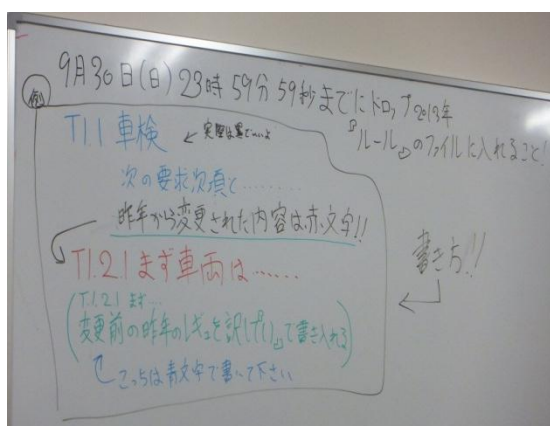 9月30日(日)23時59分59秒までにドロップ2013年
『ルール』のファイルに入れること!
例
T1.1 車検 ← 実際は黒でいいよ
次の要求次項と………
昨年から変更された内容は、赤文字!!
T1.2.1 まず車両は……
(T.1.2.1 まず…
変更前の昨年のレギュを訳し『()』で書き入れる)
こっちは青文字で書いて下さい
書き方!!